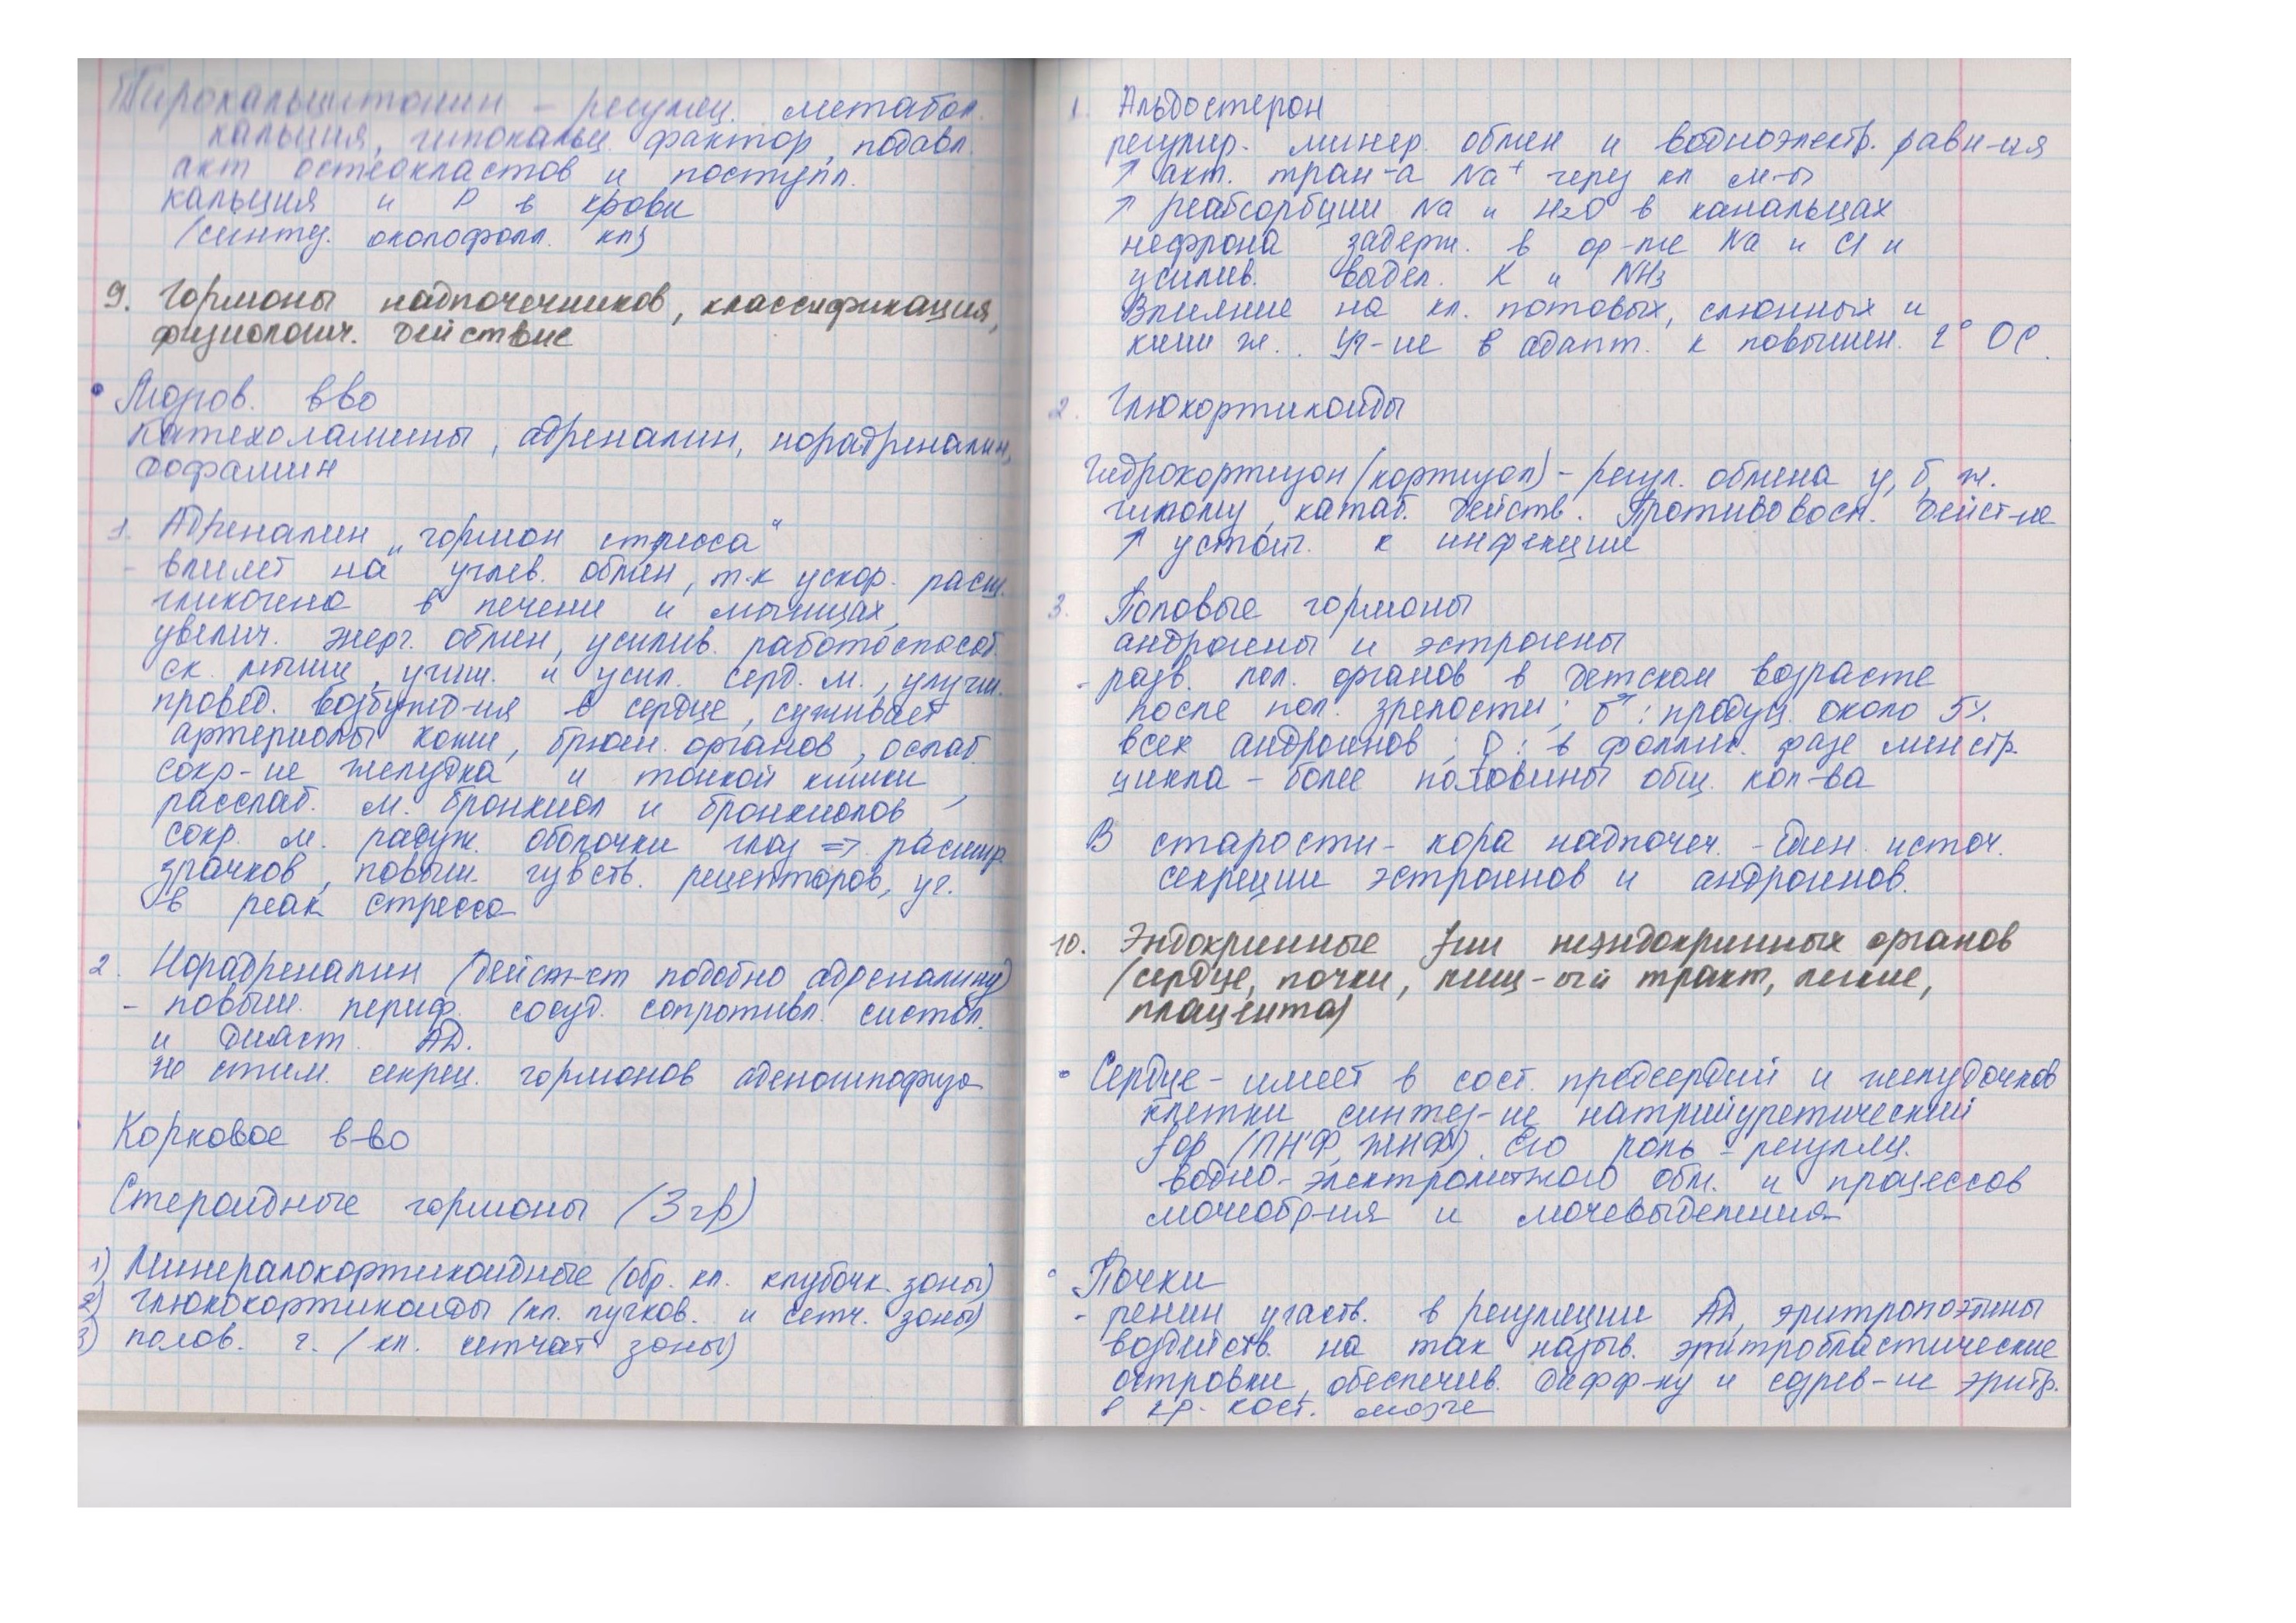 Тирокальцитонин – регуляц. метабол.
кальция, гипокальц. фактор, подавл.
акт остеокластов и поступл.
кальция и Р в крови
(синтез. околофолл. кл)
9. Гормоны надпочечников, классификация,
физиологич. действие
• Мозгов. в-во
катехоламины, адреналин, норадреналин,
дофамин
1. Адреналин „гормон стресса“
- влияет на углев. обмен, т.к ускор. расщ.
гликогена в печени и мышцах,
увелич. энерг. обмен, усилив. работоспособ.
ск. мышц, учащ. и усил. серд. м., улучш.
провед. возбужд-ия в сердце, суживает
артериолы кожи, брюшн. органов, ослаб
сокр-ие желудка и тонкой кишки,
расслаб. м. бронхиол и бронхиолов
сокр. м. радуж. оболочки глаз => расшир.
зрачков, повыш. чувств. рецепторов, уч.
в реак стресса
2. Норадреналин (действ-ет подобно адреналину)
- повыш. периф. сосуд. сопротивл. систол.
и диаст. АД.
не стим. секрец. гормонов аденогипофиза
Корковое в-во
Стероидные гормоны (3 гр)
1) Минералокортикоидные (обр. кл. клубочк. зоны)
2) глюкокортикоиды (кл. пучков. и сетч. зоны)
3) полов. г. (кл. сетчат зоны)
1. Альдостерон
регулир. минер. обмен и водноэлектр. равн-ия
↑ акт. тран-а Na⁺ через кл м-ы
↑ реабсорбции Na и H2O в канальцах
нефрона задерж. в ор-ме Na и Cl и
усилив. выдел. K и NH3
Влияние на кл. потовых, слюнных и
киш ж. Уч-ие в адапт. к повышен. t° ОС.
2. Глюкортикоиды
Гидрокортизон (кортизол) – регул. обмена у, б, ж.
гликому, катаб. действ. Противовосп. дейст-ие
↑ устойч. к инфекции
3. Половые гормоны
андрогены и эстрогены
- разв. пол. органов в детском возрасте
после пол. зрелости; ♂: продуц. около 5%
всех андрогенов; ♀: в фоллик. фазе менстр.
цикла – более половины общ. кол-ва
В старости – кора надпочеч. – един. источ.
секреции эстрогенов и андрогенов.
10. Эндокринные fии неэндокринных органов
(сердце, почки, пищ-ый тракт, легкие,
плацента)
• Сердце – имеет в сост. предсердий и желудочков
клетки синтез-ие натрийуретический
fор (ПНФ, ЖНФ). Его роль – регуляц.
водно-электролитного обм. и процессов
мочеобр-ия и мочевыделения
• Почки
- ренин участв. в регуляции АД, эритропоэтины
воздейств. на так назыв. эритробластические
островки, обеспечив. дифф-ку и созрев-ие эритр.
в кр. кост. мозге